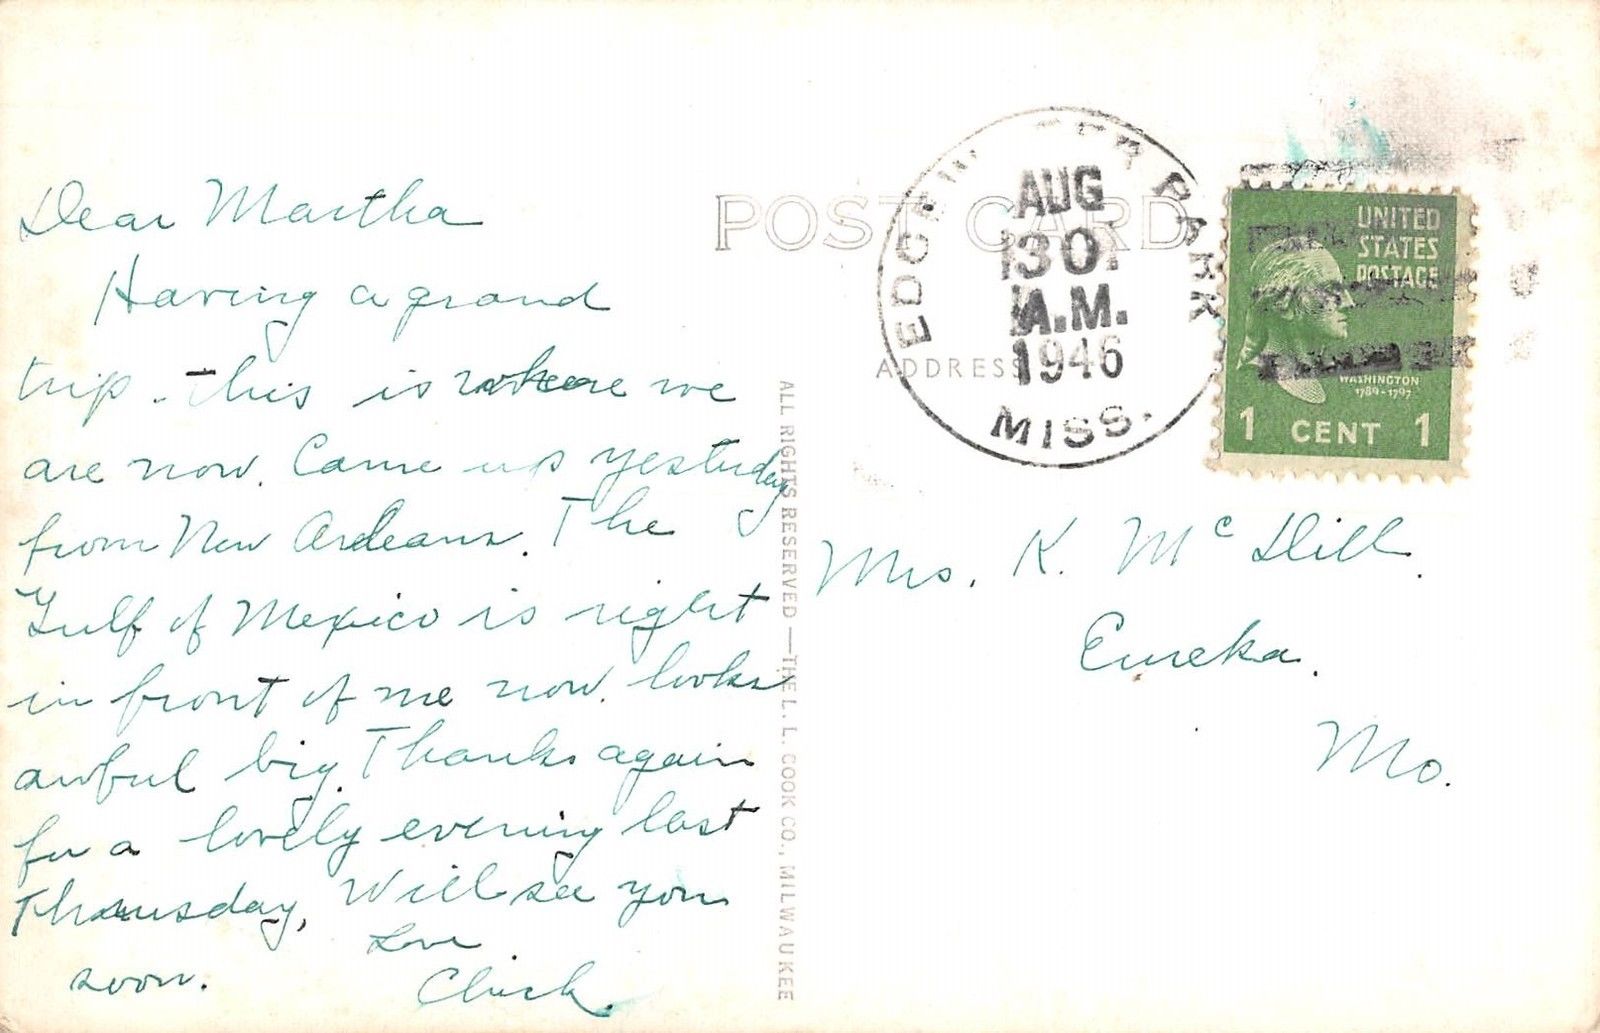 Dear Martha
Having a grand
trip. This is where we
are now. Came up yesterday
from New Orleans. The
Gulf of Mexico is right
in front of me now. looks
awful big. Thanks again
for a lovely evening last
Thursday, Will see you
soon.
Love
Chick.
ALL RIGHTS RESERVED — THE L. L. COOK CO., MILWAUKEE
POST CARD
ADDRESS
EDGEWATER PARK
AUG
30
A.M.
1946
MISS.
UNITED
STATES
POSTAGE
WASHINGTON
1789-1797
1 CENT 1
Mrs. K. McDill.
Eureka.
Mo.